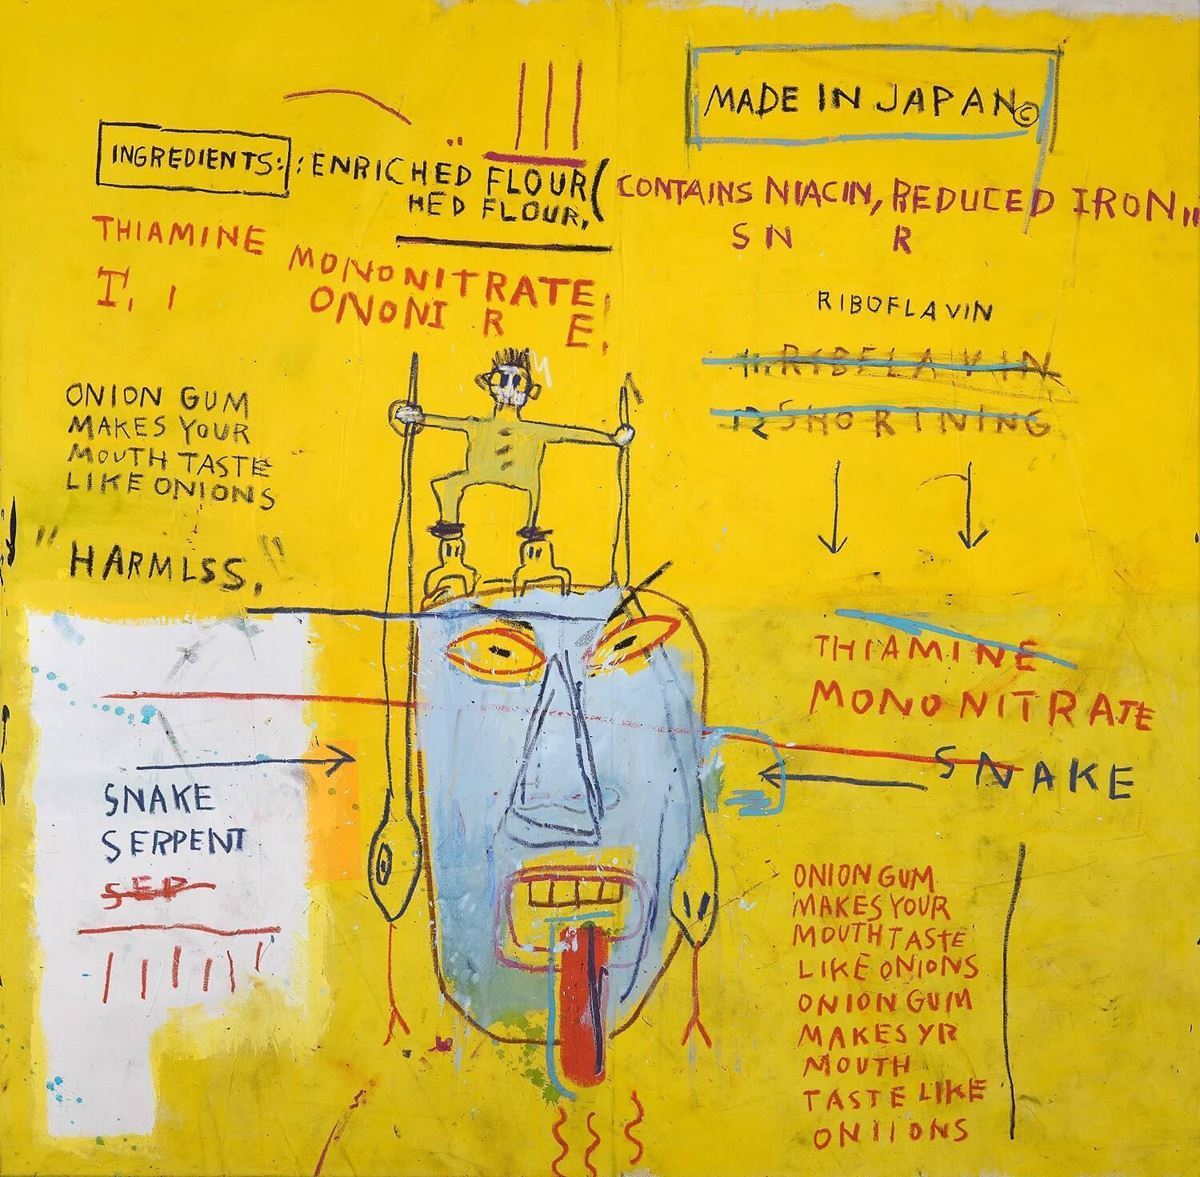 MADE IN JAPAN©
INGREDIENTS: : ENRICHED FLOUR( CONTAINS NIACIN, REDUCED IRON,,
HED FLOUR,
S N R
THIAMINE MONONITRATE,
T, I ONONI R E,
RIBOFLAVIN
11.RIBFLAVIN
12 SHORTNING
ONION GUM
MAKES YOUR
MOUTH TASTE
LIKE ONIONS
"HARMLSS,"
THIAMINE
MONONITRATE
SNAKE
SNAKE
SERPENT
SEP
ONION GUM
MAKES YOUR
MOUTH TASTE
LIKE ONIONS
ONION GUM
MAKES YR
MOUTH
TASTE LIKE
ONIIONS